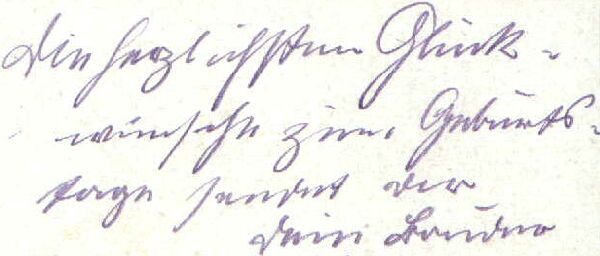 Die herzlichsten Glück-
wünsche zum Geburts-
tage sendet der
Dein Bruder